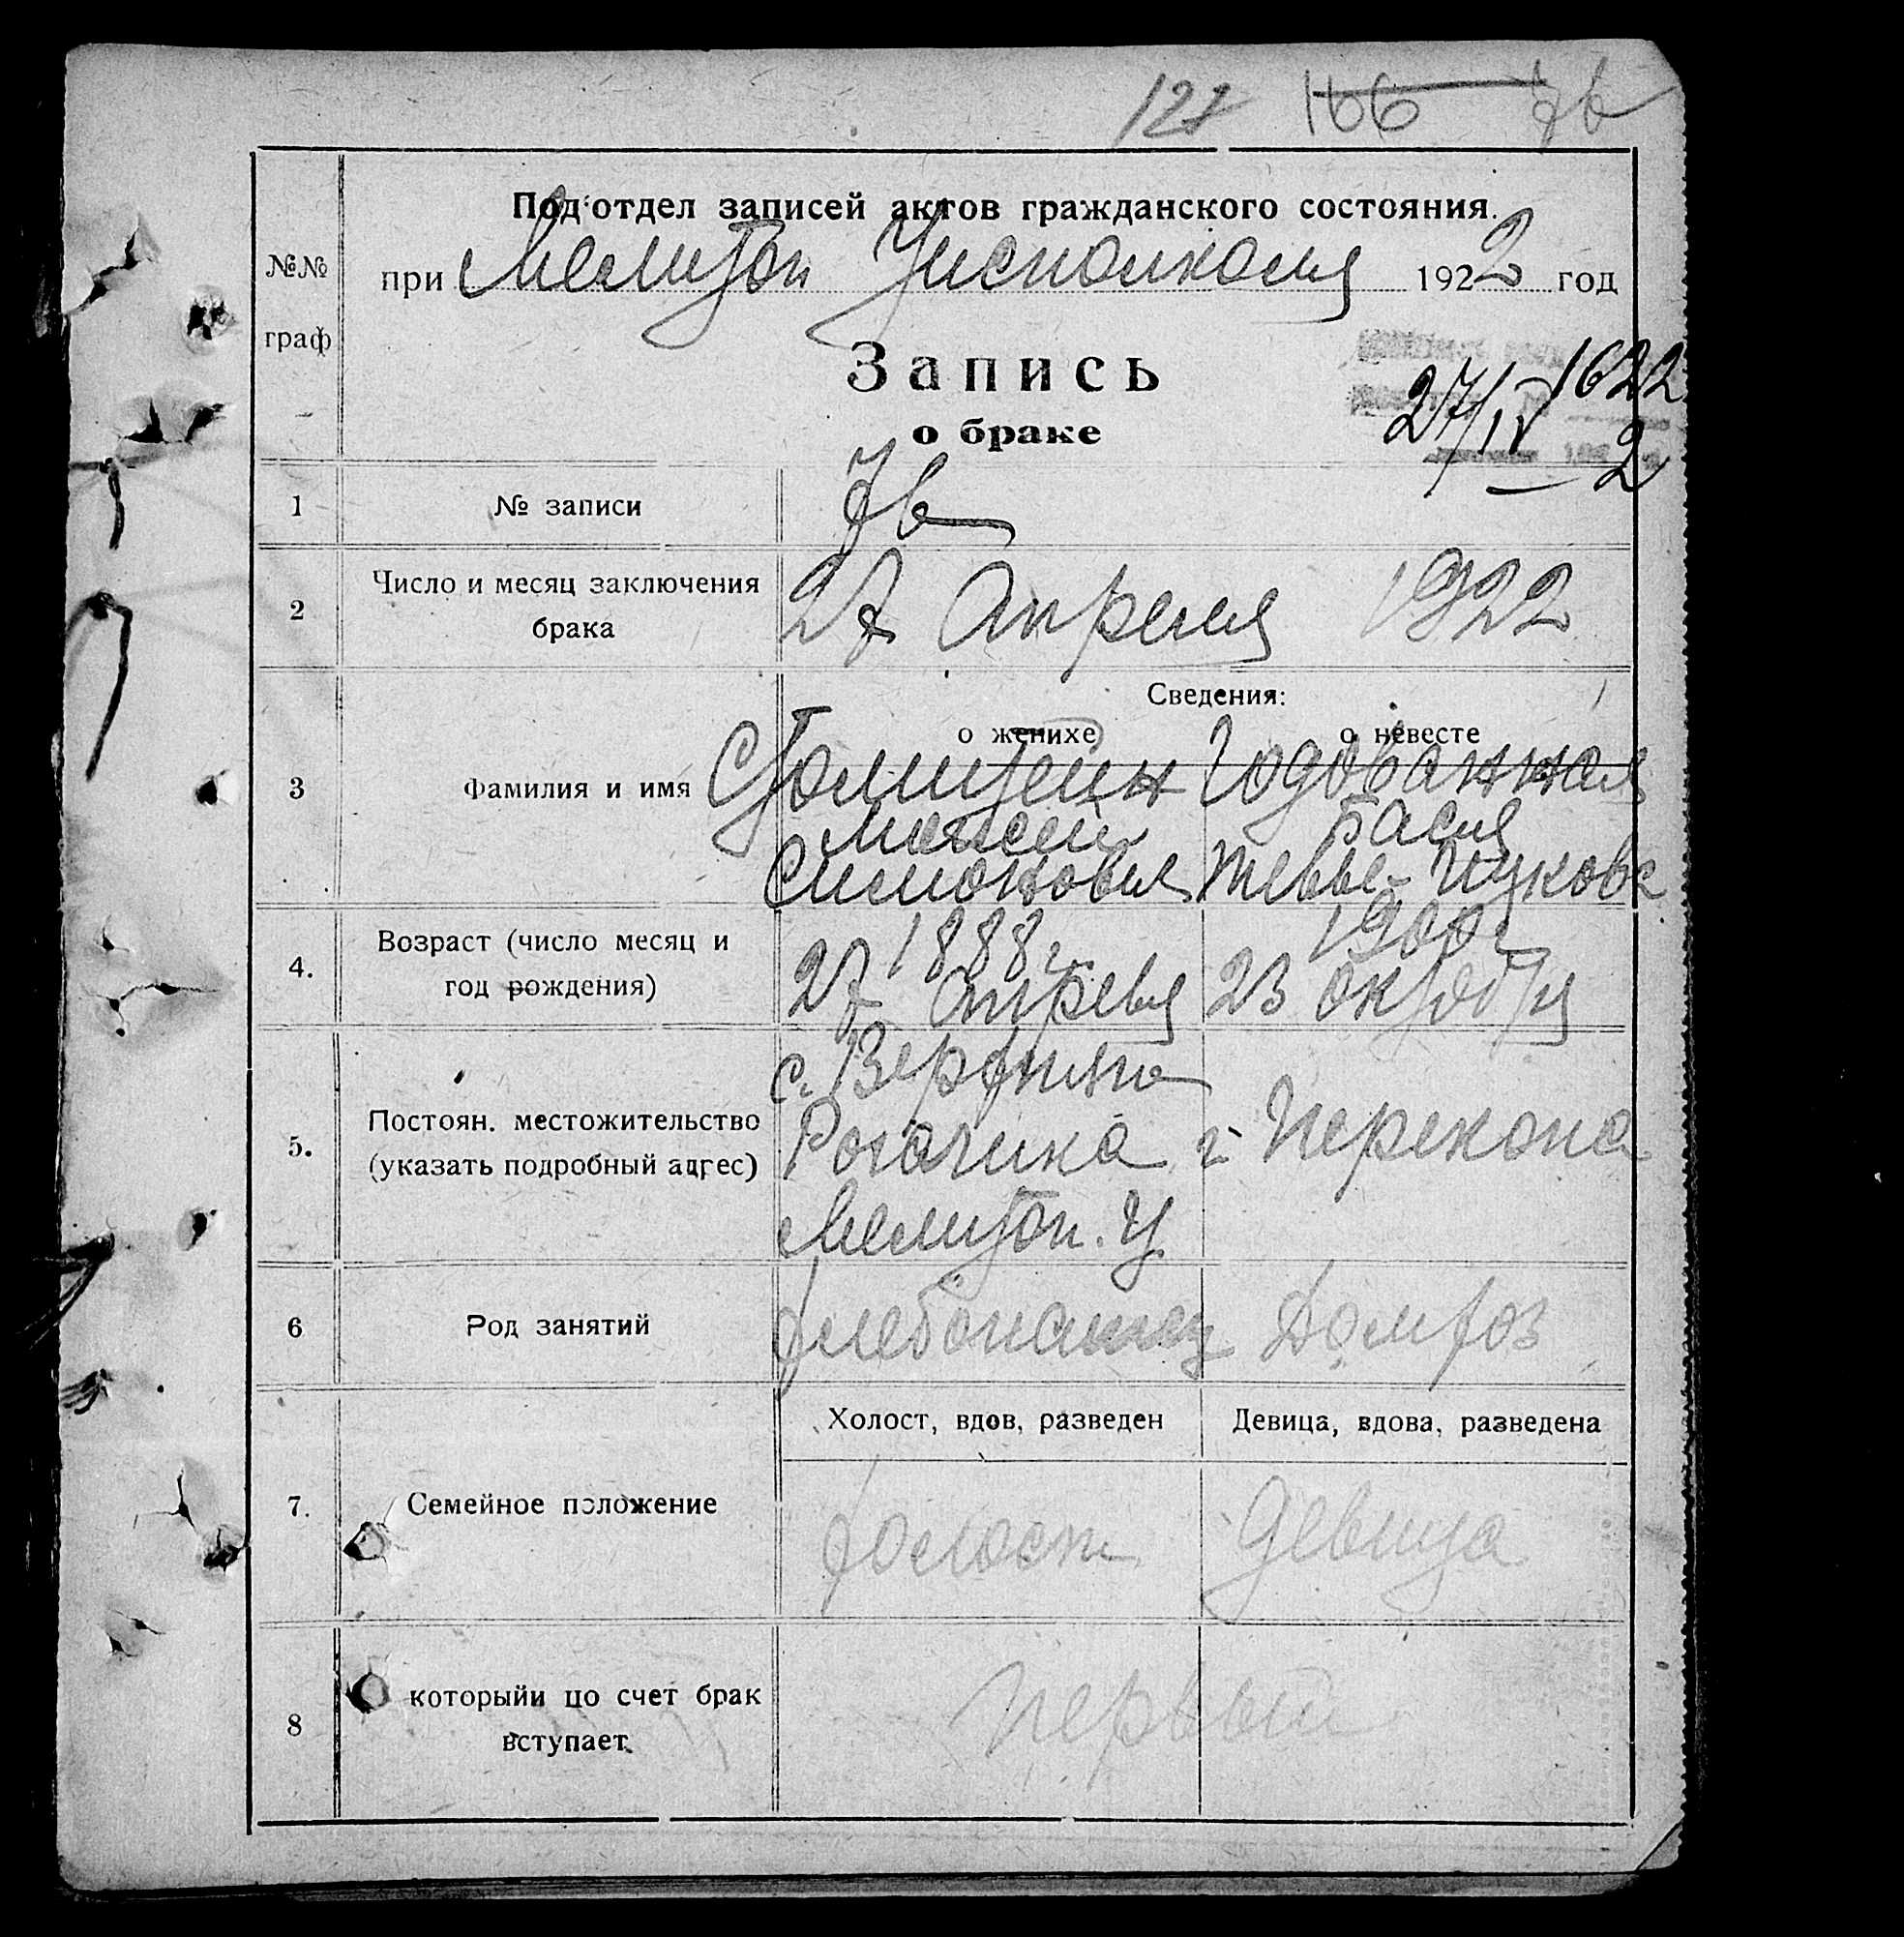 127 166 76
Подотдел записей актов гражданского состояния.
№№
граф
при Мелитоп Уисполкомя 1922 год
Запись
о браке
1622
27/IV
2
1 № записи 76
2 Число и месяц заключения
брака
27 Апреля 1922
Сведения:
о женихе о невесте
3 Фамилия и имя
Годованная
Моисей Бася
Симонович
4. Возраст (число месяц и
год рождения)
1888 г. 1900 г
27 Апреля 23 Октября
5. Постоян. местожительство
(указать подробный адрес)
с. Верхнего
Рогачика г. Перекопа
Мелитоп. У
6 Род занятий
Хлебопашец Домхоз
Холост, вдов, разведен Девица, вдова, разведена
7. Семейное положение
холост девица
8 которыйи цо счет брак
вступает
первый